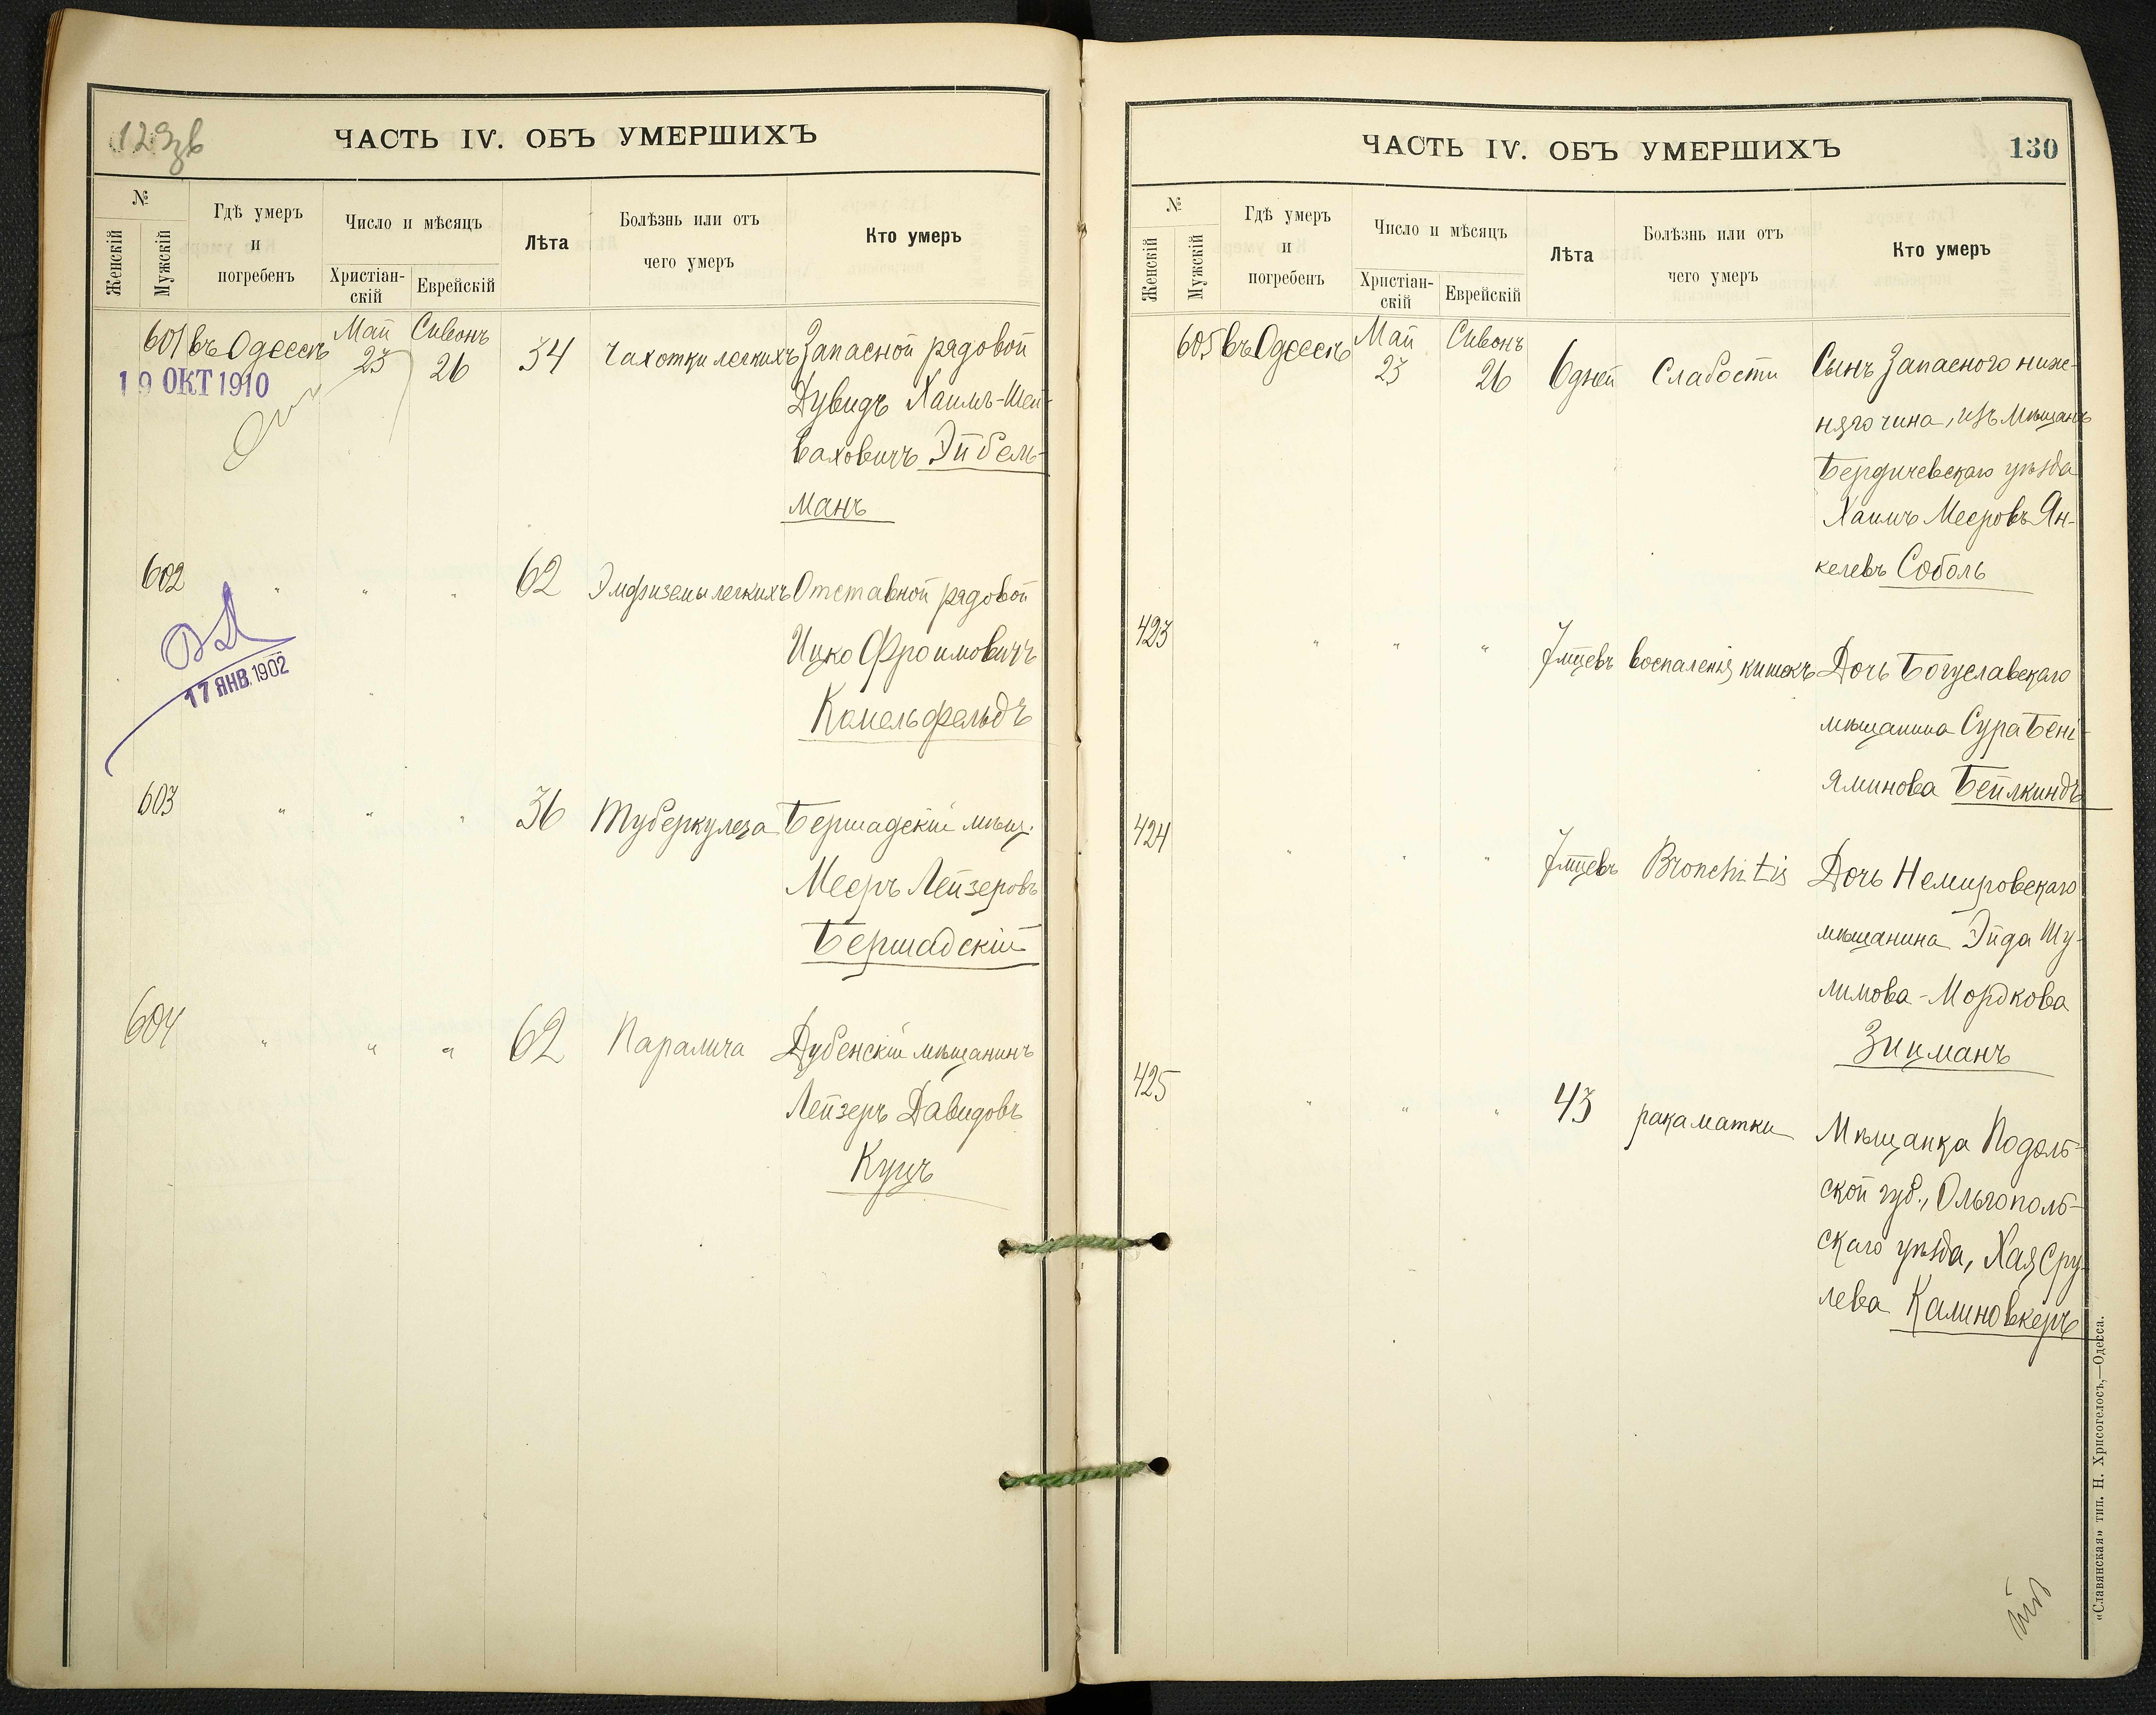 129 зв
ЧАСТЬ IV. ОБЪ УМЕРШИХЪ
№
Женскій
Мужскій
Гдѣ умеръ
и
погребенъ
Число и мѣсяцъ
Христіан-
скій
Еврейскій
Лѣта
Болѣзнь или отъ
чего умеръ
Кто умеръ
601 въ Одессѣ Май 23 Сивонъ 26 34 Чахотки легкихъ Запасной рядовой
19 ОКТ 1910
Дувидъ Хаимъ-Шей-
ваховичъ Эйбель-
манъ
602 " " " 62 Эмфиземы легкихъ Отставной рядовой
Ицко Фроимовичъ
17 ЯНВ. 1902
Капельфельдъ
603 " " " 36 Туберкулеза Бершадскій мѣщ.
Мееръ Лейзеровъ
Бершадскій
604 " " " 62 Паралича Дубенскій мѣщанинъ
Лейзеръ Давидовъ
Куцъ
ЧАСТЬ IV. ОБЪ УМЕРШИХЪ
130
№
Женскій
Мужскій
Гдѣ умеръ
и
погребенъ
Число и мѣсяцъ
Христіан-
скій
Еврейскій
Лѣта
Болѣзнь или отъ
чего умеръ
Кто умеръ
605 въ Одессѣ Май 23 Сивонъ 26 6 дней Слабости Сынъ Запасного ниж-
няго чина, изъ мѣщанъ
Бердичевскаго уѣзда
Хаимъ Мееровъ Ян-
келевъ Соболь
423 " " " 7 мцевъ воспаленія кишокъ Дочь Богуславскаго
мѣщанина Сура Бені-
яминова Бейлкиндъ
424 " " " 7 мцевъ Bronchitis Дочь Немировскаго
мѣщанина Эйда Шу-
лимова-Мордкова
Зицманъ
425 " " " 43 рака матки Мѣщанка Подоль-
ской губ., Ольгополь-
скаго уѣзда, Хая Сру-
лева Калиновкеръ
«Славянская» тип. Н. Хрисогелосъ,—Одесса.